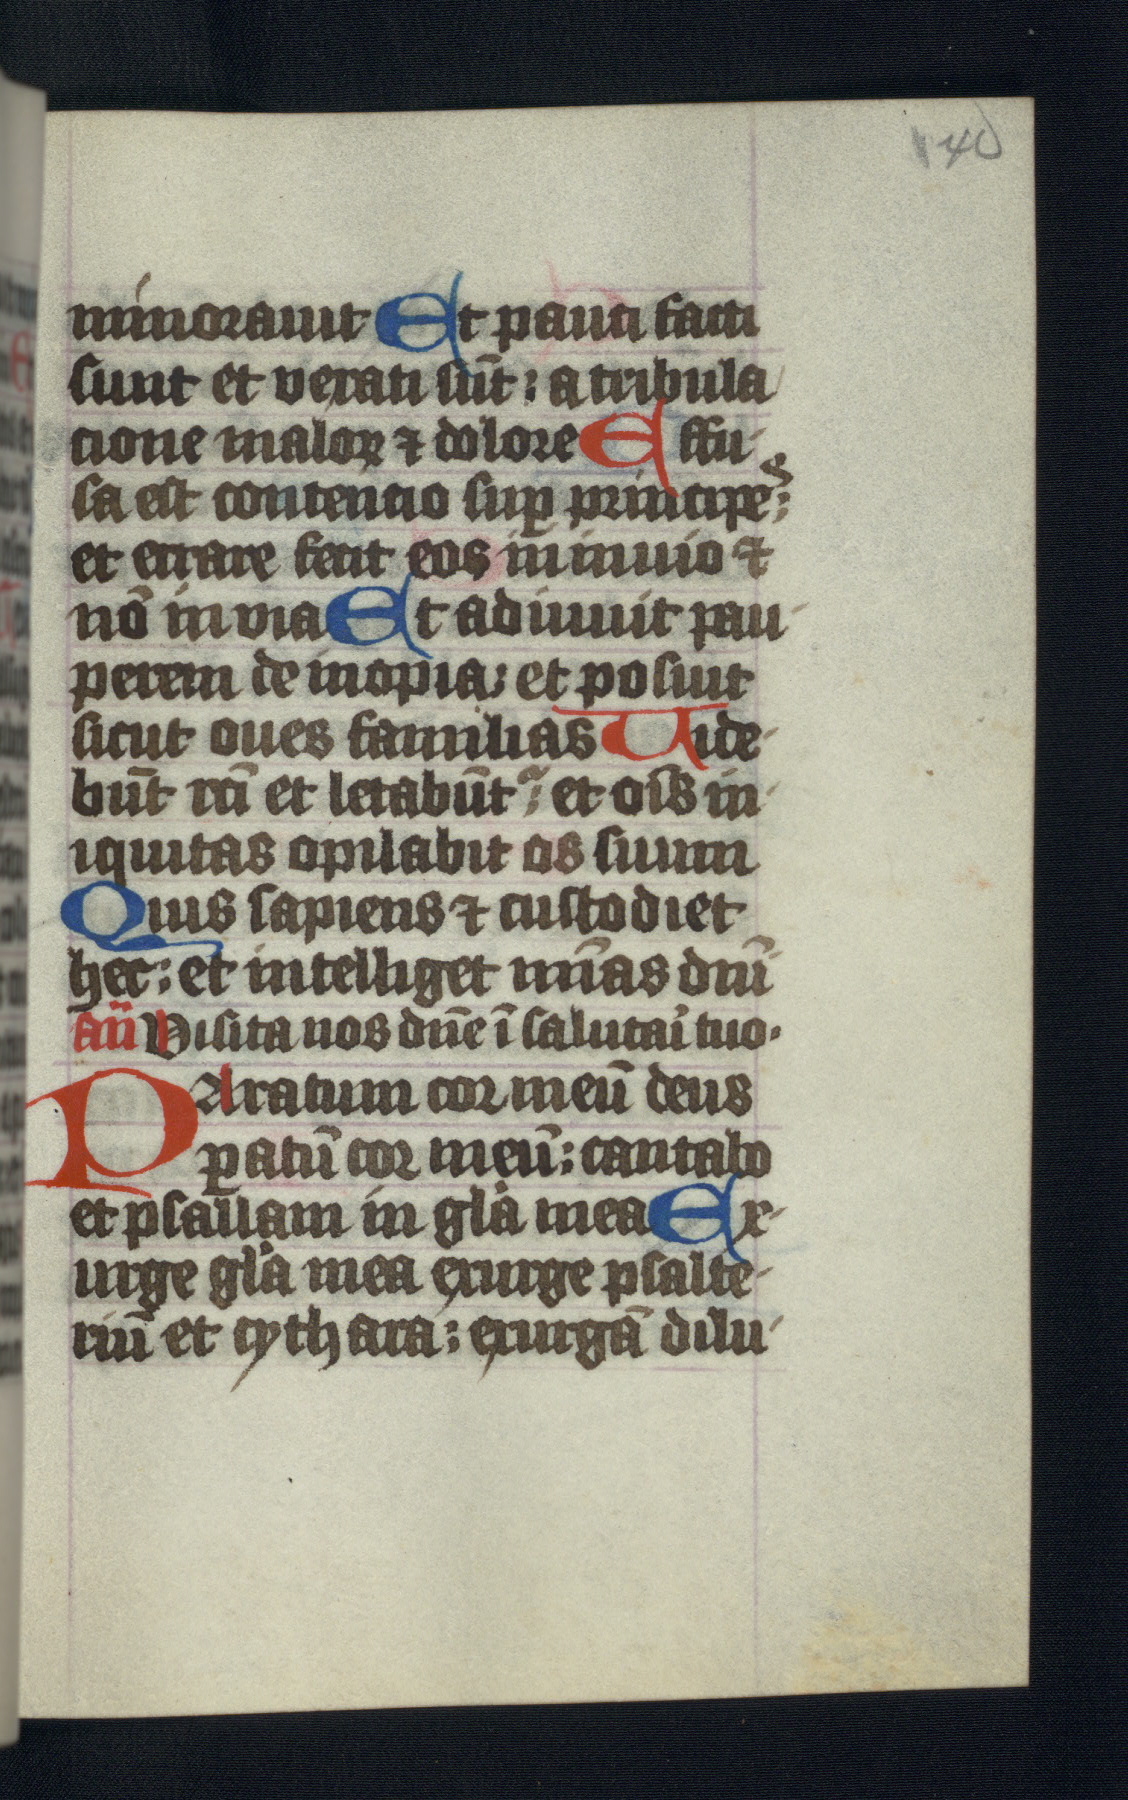 140
minorauit Et pauci facti
sunt et vexati sūt : a tribula
cione maloꝝ ⁊ dolore Effu-
sa est contentio suꝑ principeˢ ;
et errare fecit eos in inuio ⁊
nō in via Et adiuuit pau-
perem de inopia ; et posuit
sicut oues familias Uide-
būt rcī et letabūt᷑ ; et oīs in-
iquitas opilabit os suum
Quis sapiens ⁊ custodiet
hec : et intelliget mīas dnī
añ Visita nos dn̄e ī salutaı̓ tuo.
PAratum cor meū deus
ꝑatū cor meū : cantabo
et psallam in gl̓a mea Ex-
urge gl̓a mea exurge psalte-
riū et cythara : exurgā dilu-